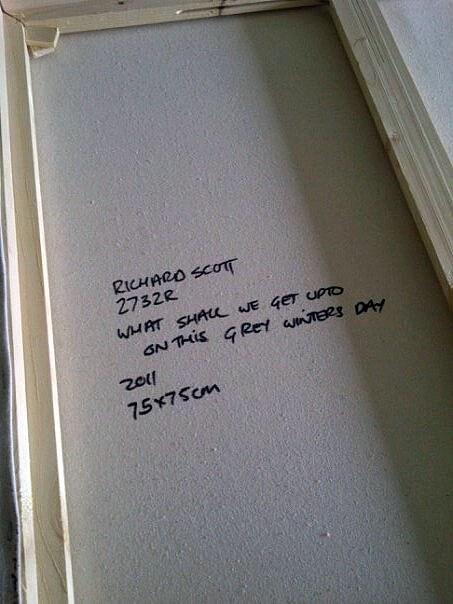 RICHARD SCOTT
2732R
WHAT SHALL WE GET UPTO
ON THIS GREY WINTERS DAY
2011
75x75cm